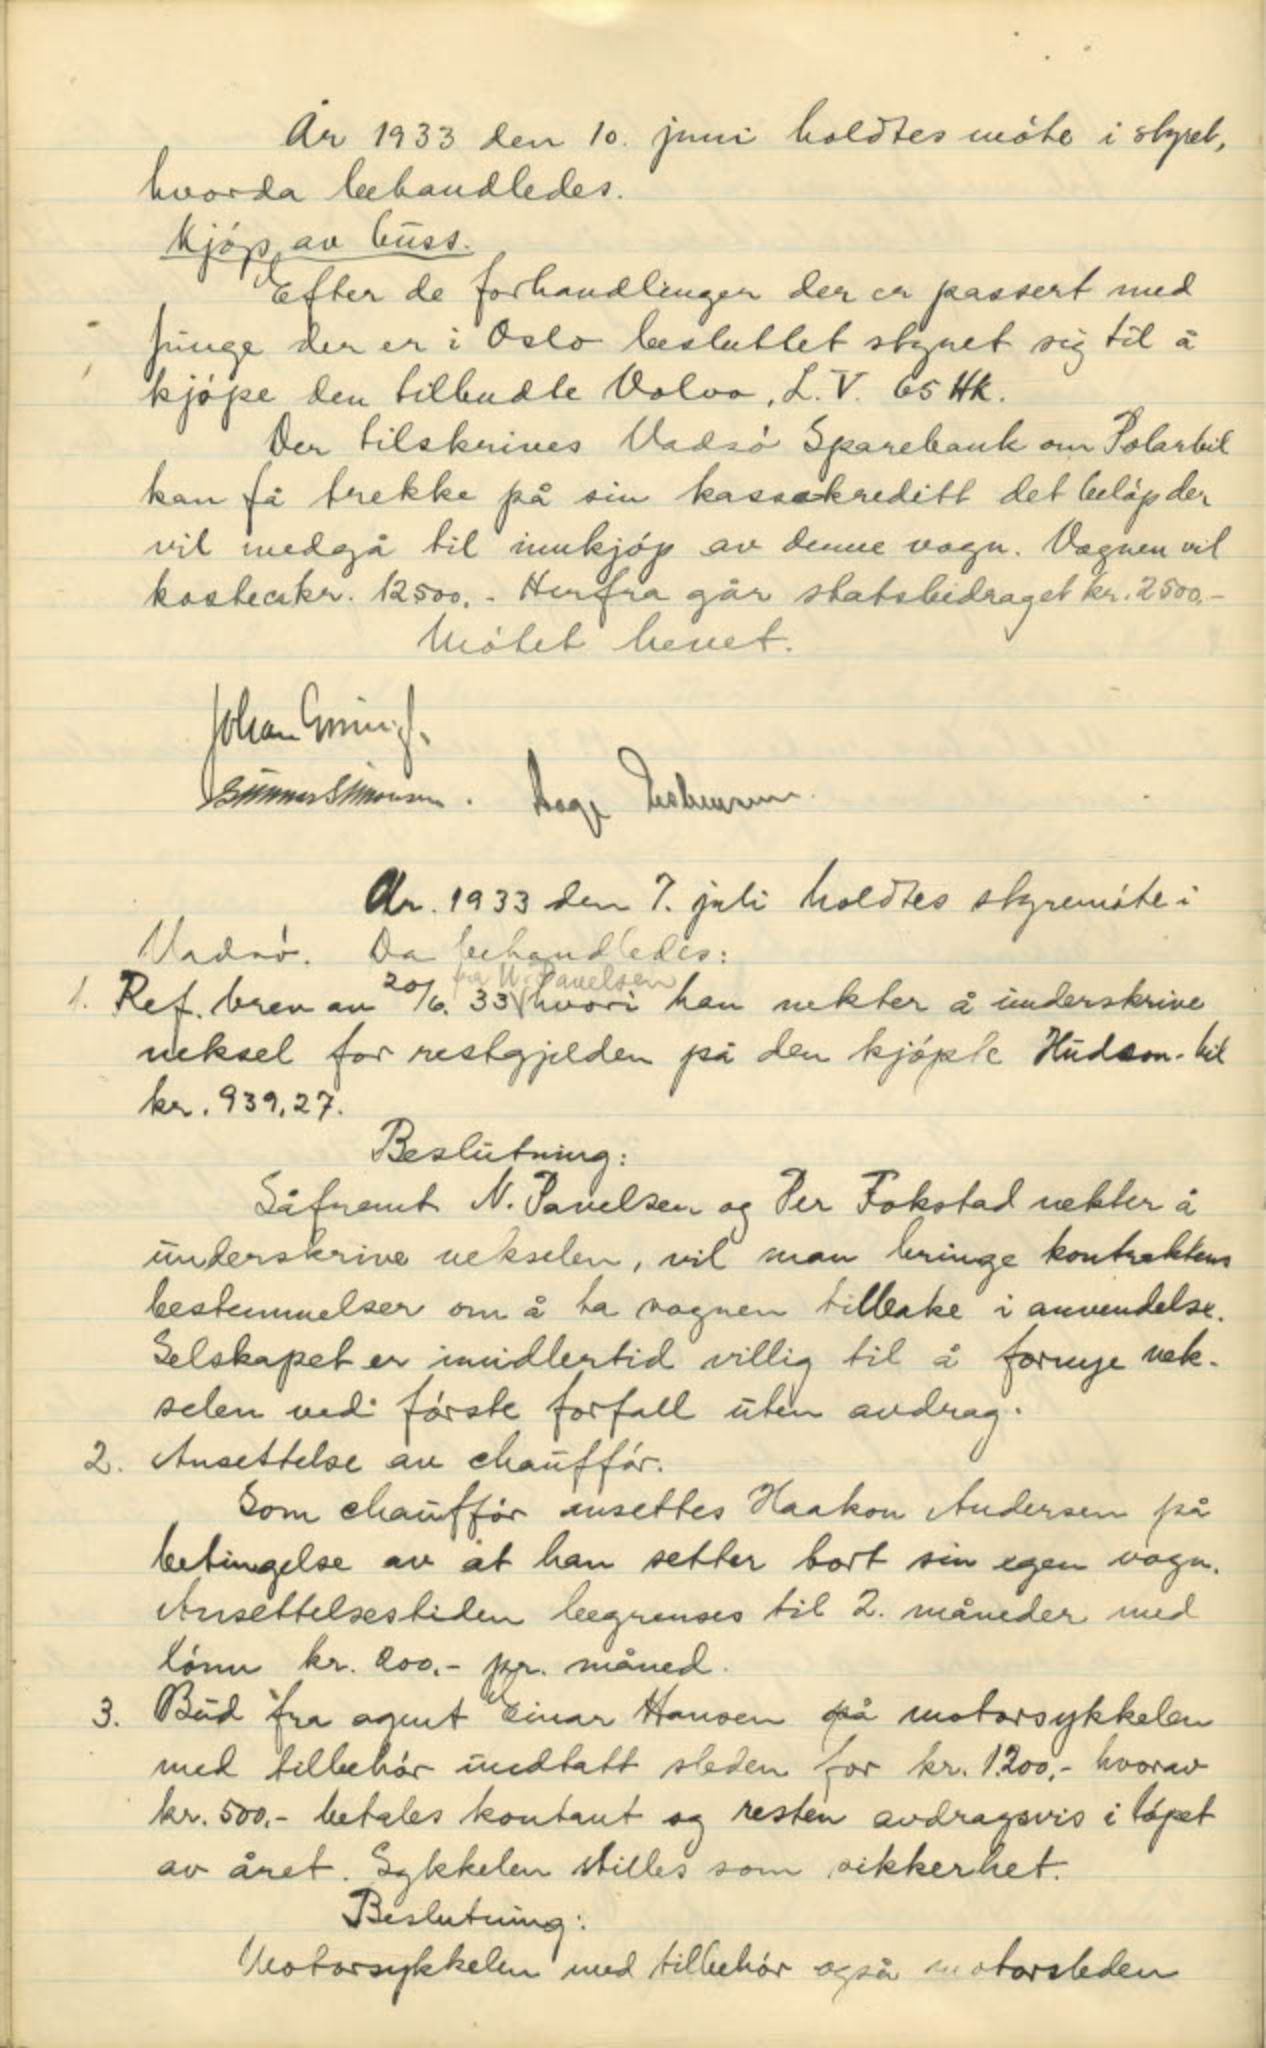 År 1933 den 10. juni holdtes möte i styret,
hvorda behandledes.
Kjöp av buss.
Efter de forhandlinger der er passert med
Junge der er i Oslo besluttet styret sig til å
kjöpe den tilbudte Volvo, L.V. 65 Hk.
Der tilskrives Vadsö Sparebank om Polarbil
kan få trekke på sin kassakreditt det belöp der
vil medgå til innkjöp av denne vogn. Vognen vil
koste ca kr. 12500,- Herfra går statsbidraget kr. 2500,-
Mötet hevet.
Johan
Gunnar Simonsen. Aage
År. 1933 den 7. juli holdtes styremöte i
Vadsö. Da behandledes:
fra N. Pavelsen
1. Ref. brev av 20/6. 33 hvori han nekter å underskrive
veksel for restgjelden på den kjöpte Hudson-bil
kr. 939,27.
Beslutning:
Såfremt N. Pavelsen og Per Fokstad nekter å
underskrive vekselen, vil man bringe kontraktens
bestemmelser om å ta vognen tilbake i anvendelse.
Selskapet er imidlertid villig til å fornye vek-
selen ved förste forfall uten avdrag.
2. Ansettelse av chaufför.
Som chaufför ansettes Haakon Andersen på
betingelse av at han setter bort sin egen vogn.
Ansettelsestiden begrenses til 2. måneder med
lönn kr. 200,- pr. måned.
3. Bud fra agent Einar Hansen på motorsykkelen
med tilbehör undtatt sleden for kr. 1200,- hvorav
kr. 500,- betales kontant og resten avdragsvis i löpet
av året. Sykkelen stilles som sikkerhet.
Beslutning:
Motorsykkelen med tilbehör også motorsleden